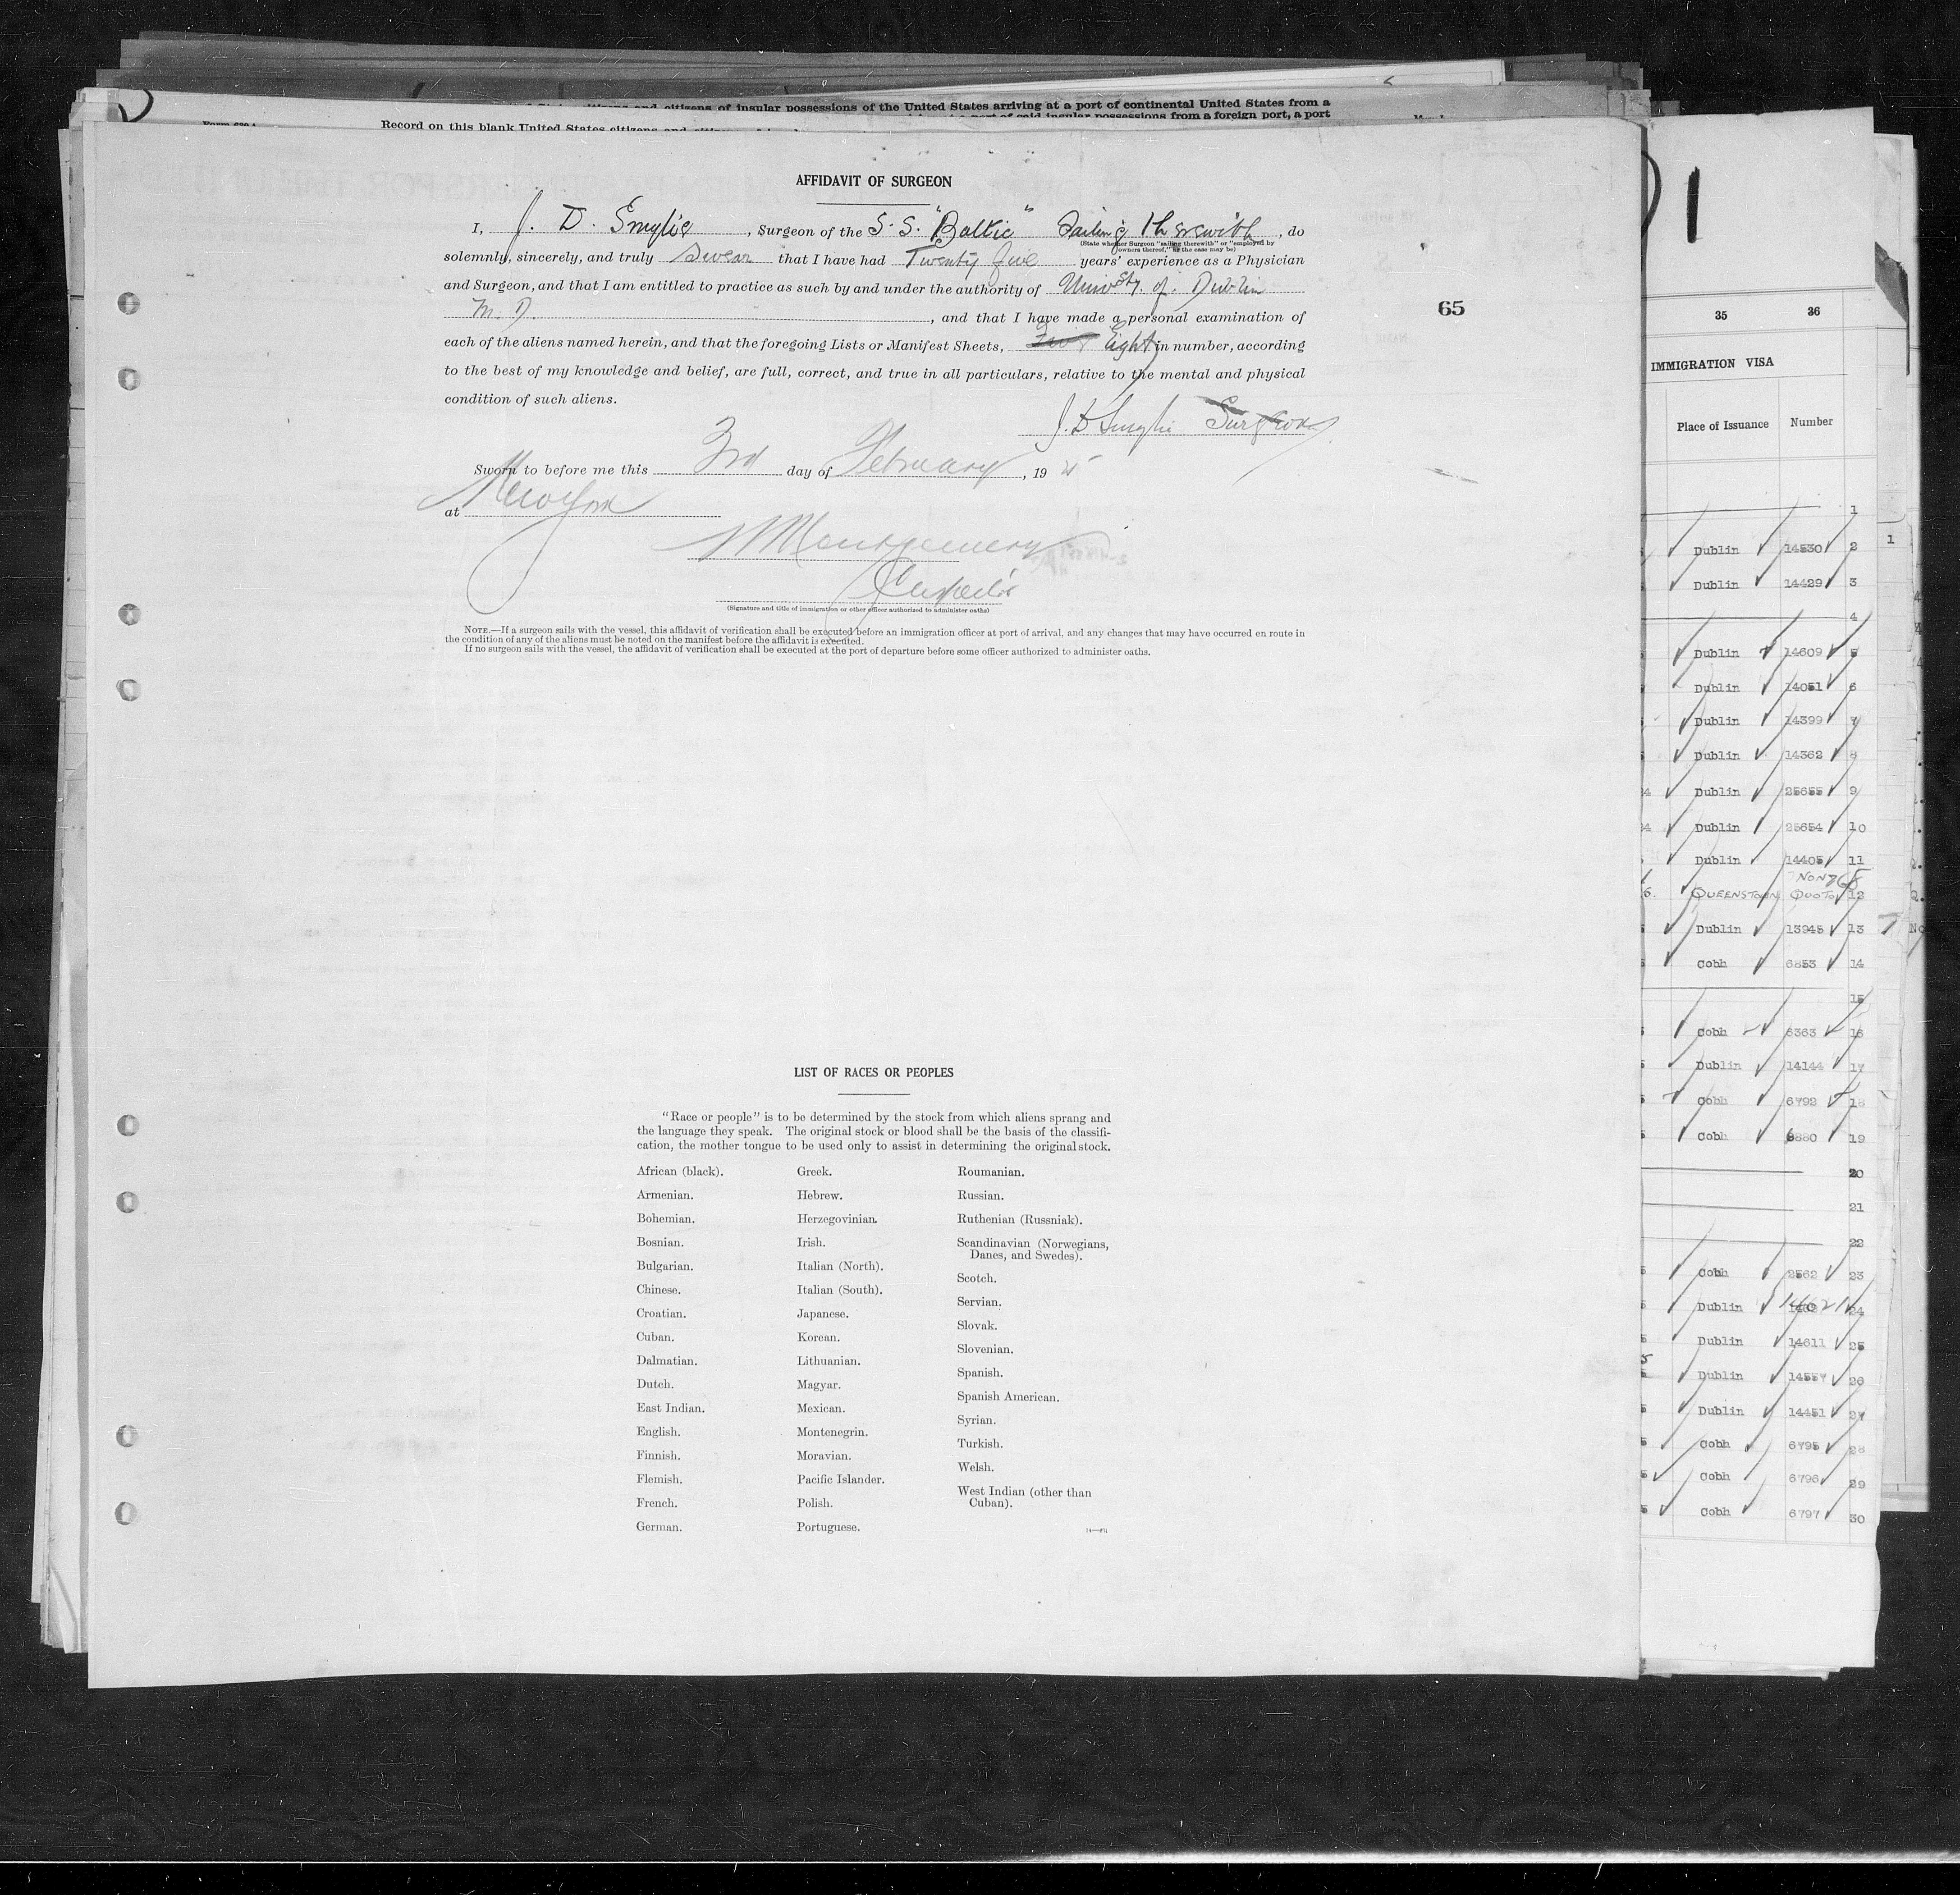 Record on this blank United States citizens and citizens of insular possessions of the United States arriving at a port of continental United States from a
possessions from a foreign port, a port
AFFIDAVIT OF SURGEON
I, J. D. Smylie, Surgeon of the S. S. "Baltic" Sailing Therewith, do
(State whether Surgeon "sailing therewith" or "employed by
owners thereof," as the case may be)
solemnly, sincerely, and truly Swear that I have had Twenty five years' experience as a Physician
and Surgeon, and that I am entitled to practice as such by and under the authority of Univsty. of. Dublin
M. D., and that I have made a personal examination of
each of the aliens named herein, and that the foregoing Lists or Manifest Sheets, Eight in number, according
to the best of my knowledge and belief, are full, correct, and true in all particulars, relative to the mental and physical
condition of such aliens.
J. D Smylie Surgeon
Sworn to before me this 3rd day of February, 19
at New York
Montgomery
Inspector
(Signature and title of immigration or other officer authorized to administer oaths)
NOTE.—If a surgeon sails with the vessel, this affidavit of verification shall be executed before an immigration officer at port of arrival, and any changes that may have occurred en route in
the condition of any of the aliens must be noted on the manifest before the affidavit is executed.
If no surgeon sails with the vessel, the affidavit of verification shall be executed at the port of departure before some officer authorized to administer oaths.
65
LIST OF RACES OR PEOPLES
"Race or people" is to be determined by the stock from which aliens sprang and
the language they speak. The original stock or blood shall be the basis of the classifi-
cation, the mother tongue to be used only to assist in determining the original stock.
African (black).
Armenian.
Bohemian.
Bosnian.
Bulgarian.
Chinese.
Croatian.
Cuban.
Dalmatian.
Dutch.
East Indian.
English.
Finnish.
Flemish.
French.
German.
Greek.
Hebrew.
Herzegovinian.
Irish.
Italian (North).
Italian (South).
Japanese.
Korean.
Lithuanian.
Magyar.
Mexican.
Montenegrin.
Moravian.
Pacific Islander.
Polish.
Portuguese.
Roumanian.
Russian.
Ruthenian (Russniak).
Scandinavian (Norwegians,
Danes, and Swedes).
Scotch.
Servian.
Slovak.
Slovenian.
Spanish.
Spanish American.
Syrian.
Turkish.
Welsh.
West Indian (other than
Cuban).
35 36
IMMIGRATION VISA
Place of Issuance Number
1
Dublin 14530 2
Dublin 14429 3
4
Dublin 14609 5
Dublin 14051 6
Dublin 14399 7
Dublin 14362 8
Dublin 25655 9
Dublin 25654 10
Dublin 14405 11
QUEENSTOWN NON QUOTA 12
Dublin 13945 13
Cobh 6853 14
15
Cobh 6363 16
Dublin 14144 17
Cobh 6792 18
Cobh 6880 19
20
21
22
Cobh 2562 23
Dublin 14621 24
Dublin 14611 25
Dublin 14557 26
Dublin 14451 27
Cobh 6795 28
Cobh 6796 29
Cobh 6797 30